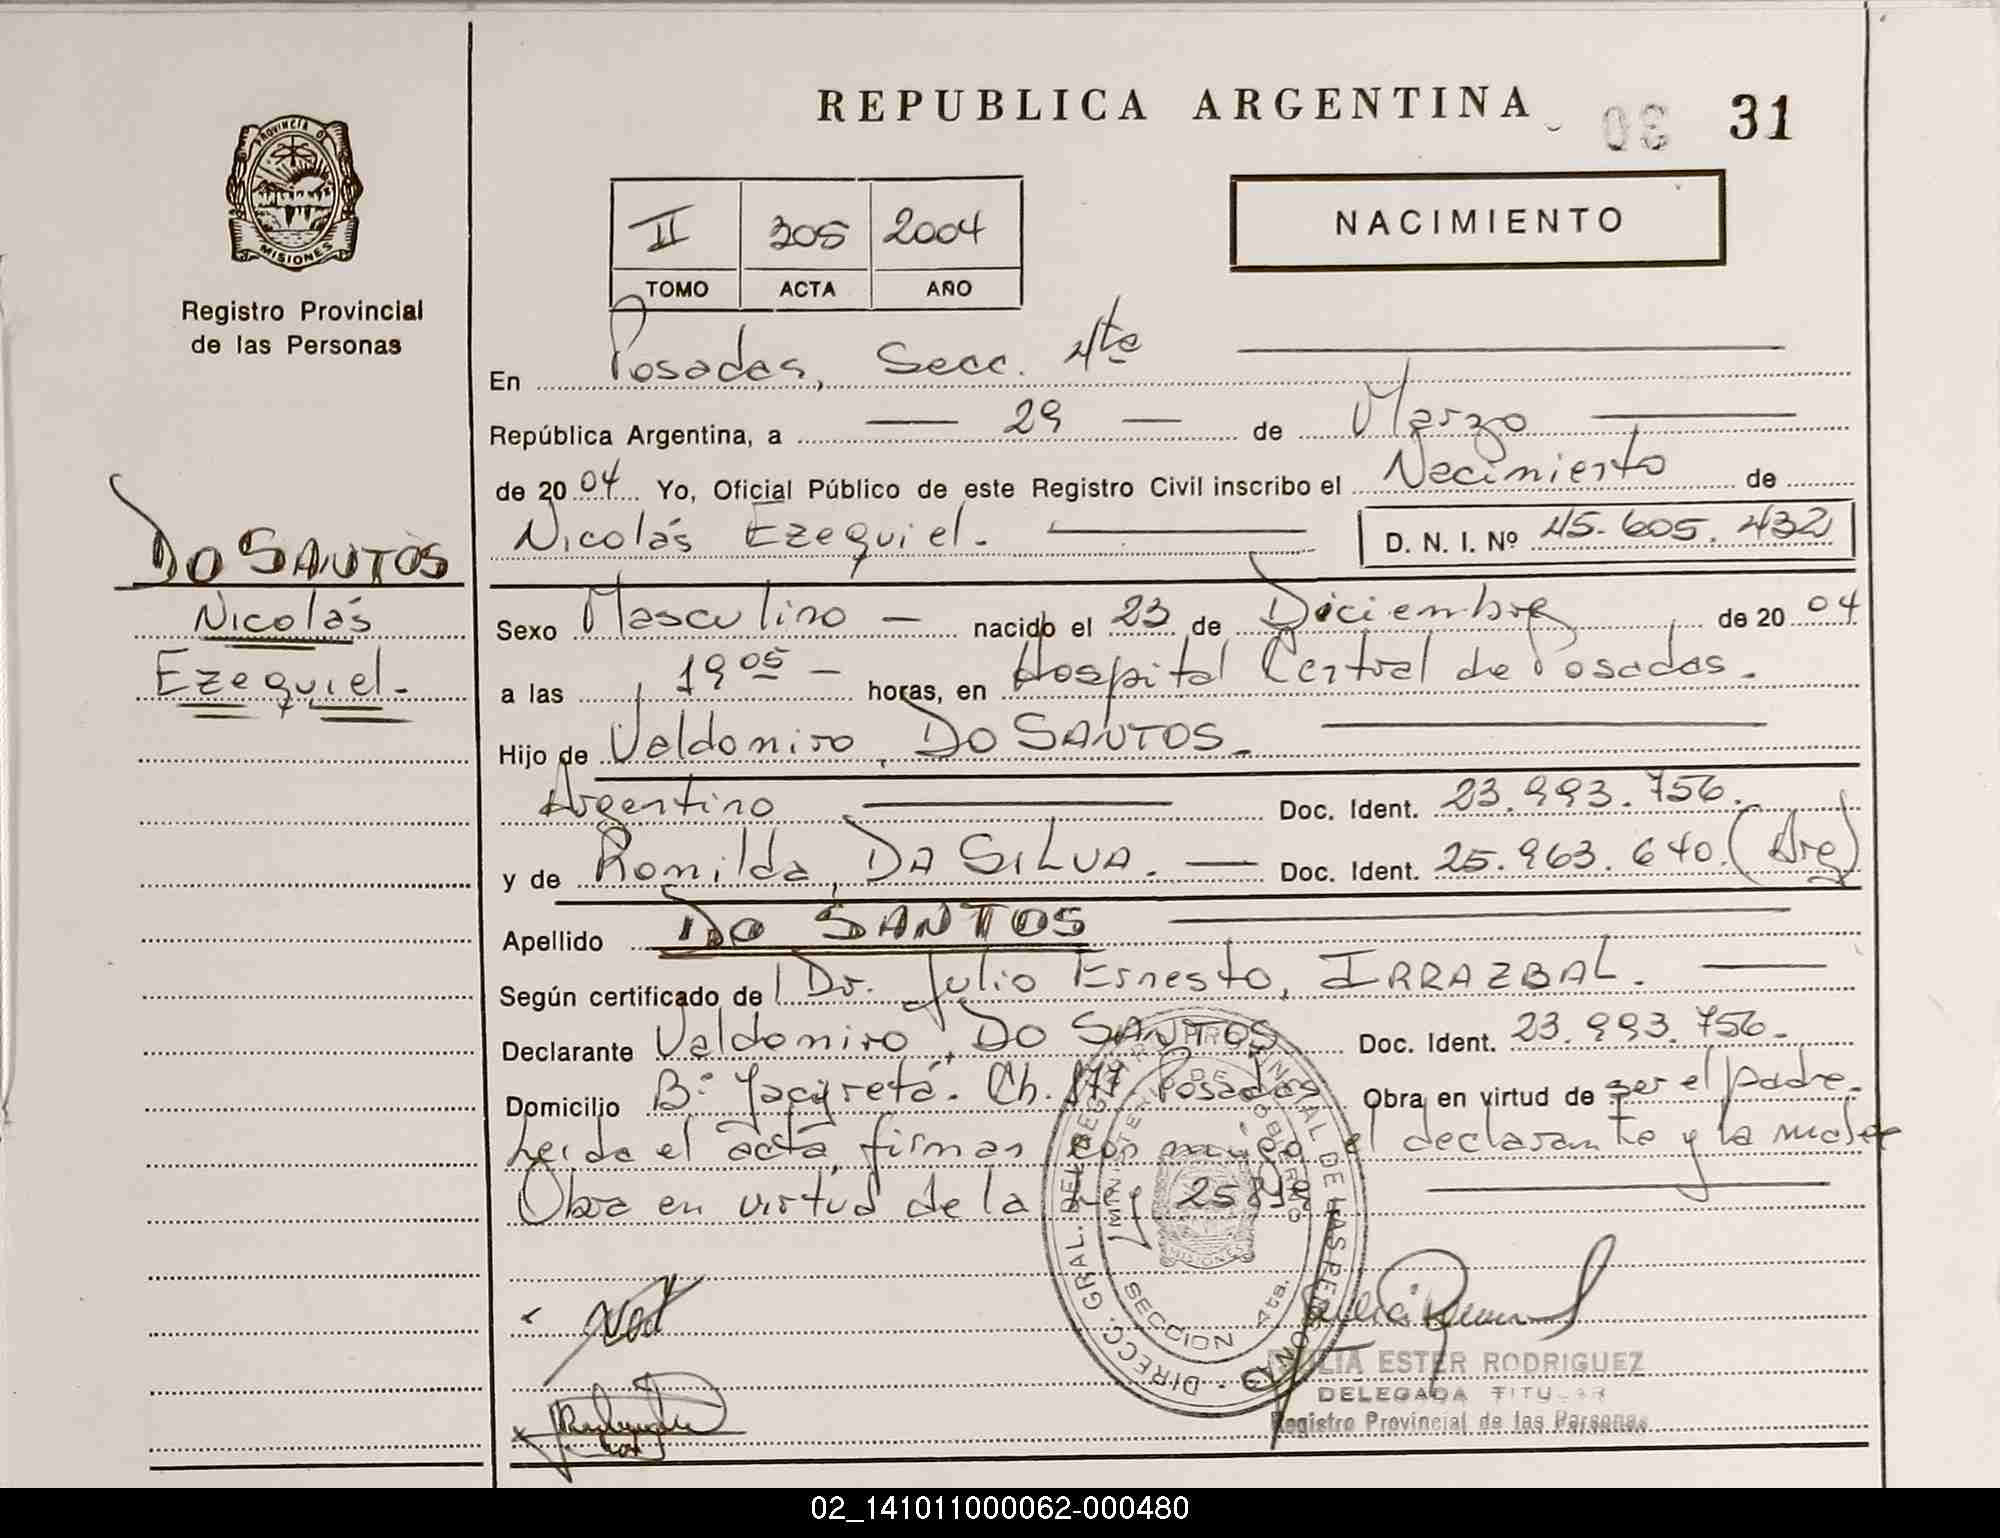 REPUBLICA ARGENTINA
31
PROVINCIA DE
MISIONES
Registro Provincial
de las Personas
II 305 2004
TOMO ACTA AÑO
NACIMIENTO
En Posadas, Secc. 4ta
República Argentina, a 29 de Marzo
de 2004 Yo, Oficial Público de este Registro Civil inscribo el Nacimiento de
Nicolás Ezequiel. D. N. I. Nº 45.605.432
DO SANTOS
Nicolás
Ezequiel.
Sexo Masculino nacido el 23 de Diciembre de 2004
a las 19 05 horas, en Hospital Central de Posadas.
Hijo de Valdomiro, DO SANTOS.
Argentino Doc. Ident. 23.993.756.
y de Romilda, DA SILVA. Doc. Ident. 25.963.640. (Arg)
Apellido DO SANTOS
Según certificado de Dr. Julio Ernesto, IRRAZBAL.
Declarante Valdomiro, DO SANTOS Doc. Ident. 23.993.756.
Domicilio Bº Yacyretá. Ch. 177 Posadas Obra en virtud de ser el padre.
Leida el acta, firman con migo el declarante y la madre
Obra en virtud de la Ley
DIRECC. GRAL. DEL REGISTRO PROVINCIAL DE LAS PERSONAS
MINISTERIO DE GOBIERNO
MISIONES
SECCION 4ta.
JULIA ESTER RODRIGUEZ
DELEGADA TITULAR
Registro Provincial de las Personas
02_141011000062-000480